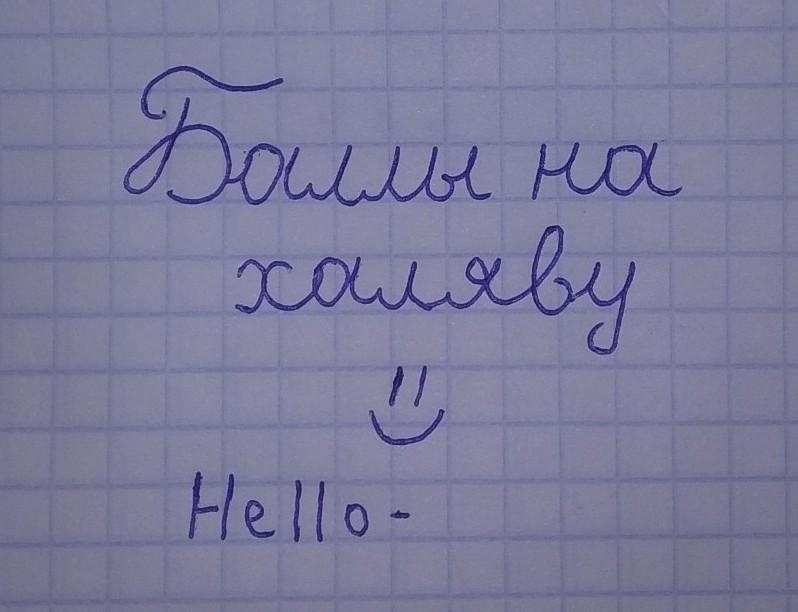 Баллы на
халяву
Hello-